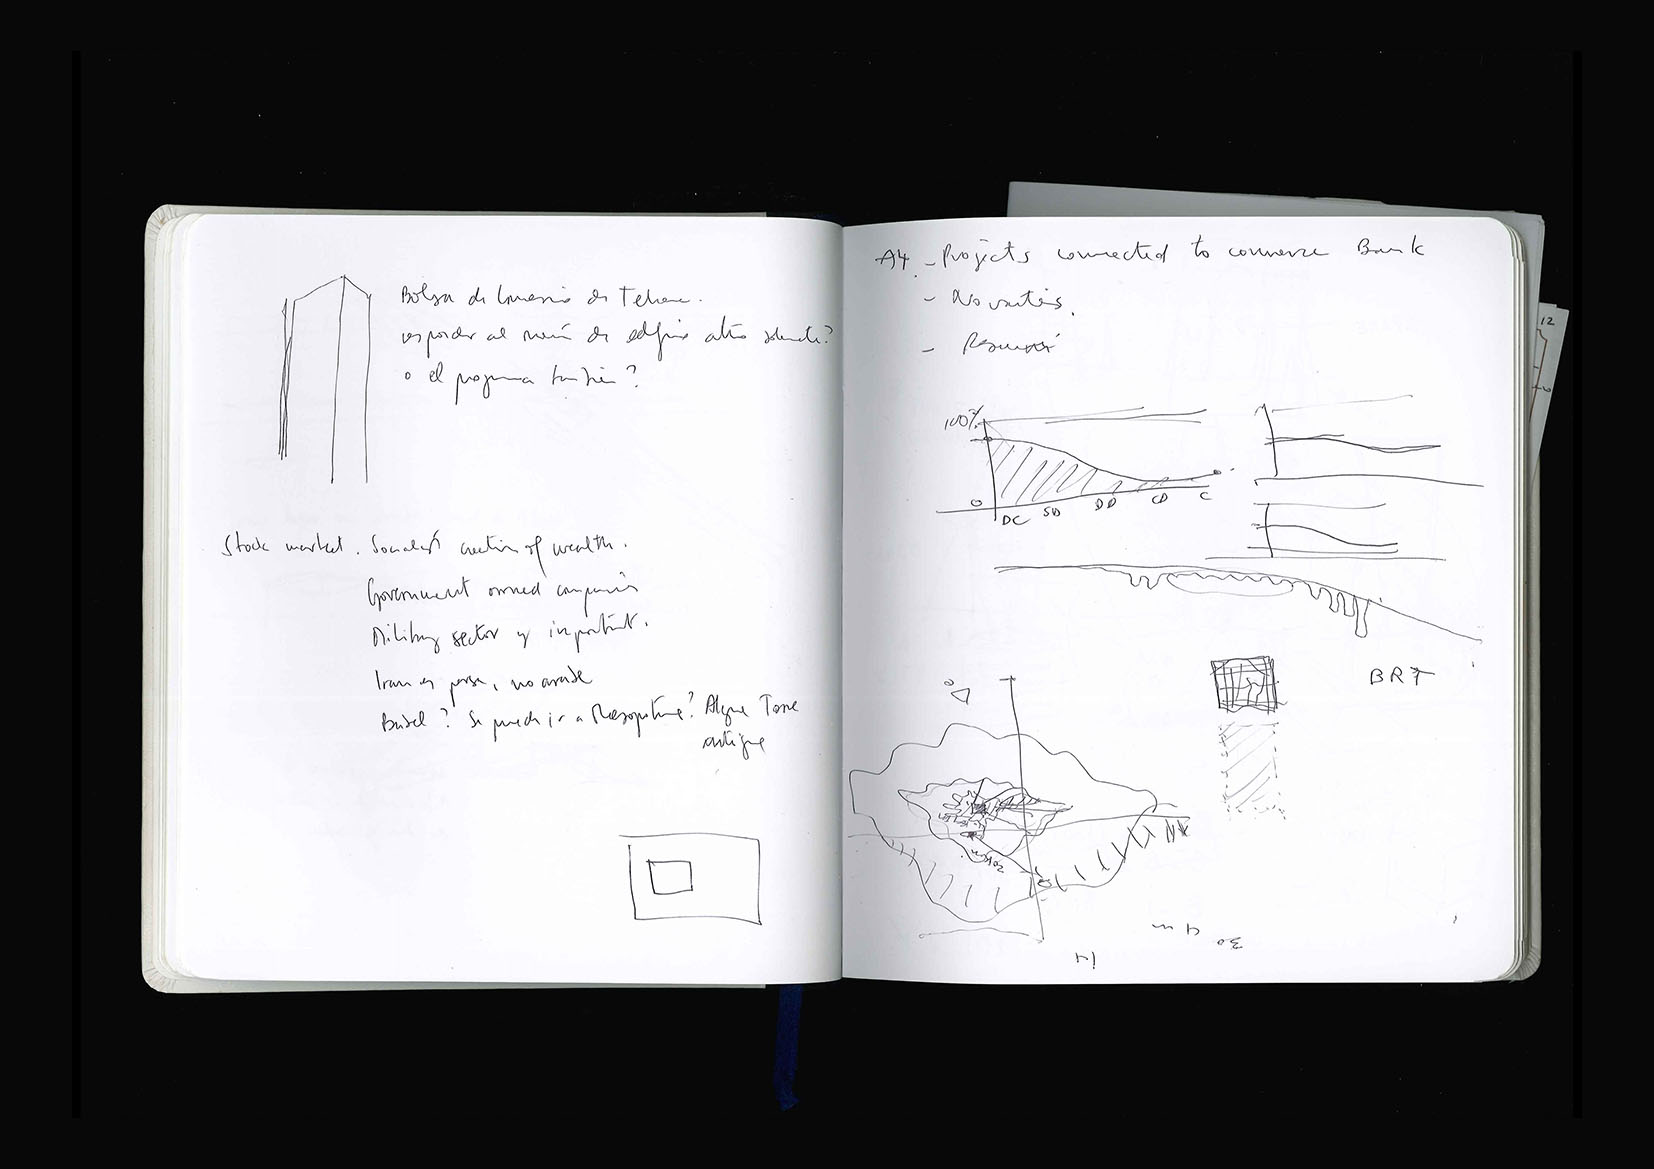 Bolsa de Comercio de Teheran.
responder al menú de edificio alto solamente?
o el programa también?
Stock market. Socialist creation of wealth.
Government owned companies
Military sector is important.
Iran es persa, no arabe
Se puede ir a Mesopotamia? Alguna Torre
antigua
A4. - Projects connected to commerce Bank
100%
0
DC SD DD CD C
BRT
30
12